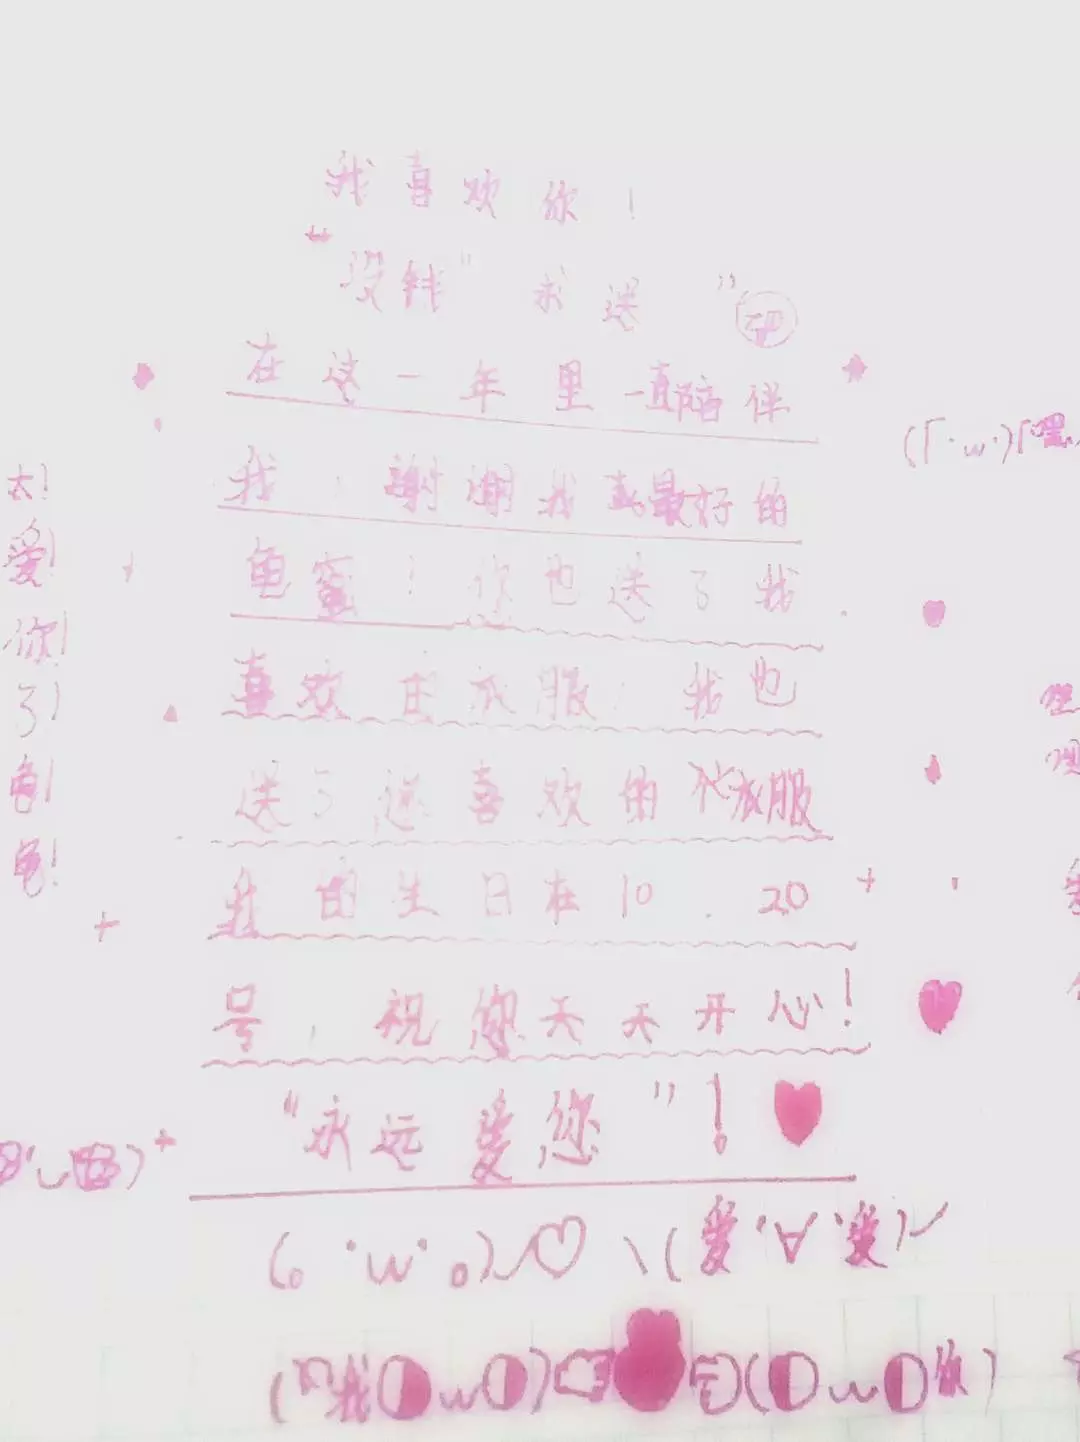 我喜欢你！
“没钱”求送
在这一年里一直陪伴
我，谢谢我真最好的
龟蜜！您也送了我
喜欢的衣服，我也
送了送喜欢的衣服
我的生日在10.20
号，祝您天天开心！
“永远爱您”！
(。·w·。)♡ \(爱·∀·爱)
我 w w 你)
太！
爱！
你！
了！
龟！
龟！
(「·w·)「嘿